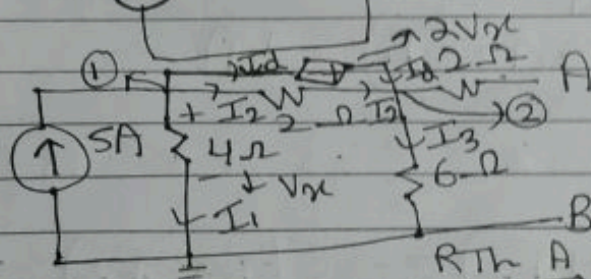 2Vx
① Id Id 2Ω A
+ I2 2Ω I2 ②
5A 4Ω I3
Vx 6Ω
I1 B
RTh A